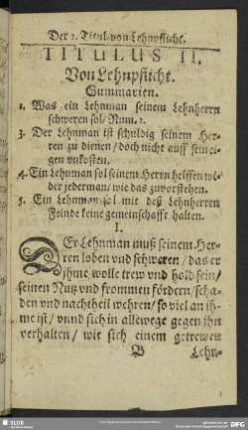 Der 2. Titul/von Lehnpflicht.
TITULUS II.
Von Lehnpflicht.
Summarien.
1. Was ein Lehnman seinem Lehnherrn
schweren sol/ Num. 2.
3. Der Lehnman ist schuldig seinem Her-
ren zu dienen / doch nicht auff sein ei-
gen vnkosten.
4. Ein Lehnman sol seinem Herrn helffen wi-
der jederman/ wie das zuverstehen.
5. Ein Lehnman sol mit deß Lehnherrn
Feinde keine gemeinschafft halten.
I.
DEr Lehnman muß seinem Her-
ren loben vnd schweren / das er
jhme wolle trew vnd hold sein/
seinen Nutz vnd frommen fördern/ scha-
den vnd nachtheil wehren/ so viel an jh-
me ist/ vnnd sich in allewege gegen jhn
verhalten / wie sich einem getrewen
B Lehn-
SLUB
DFG